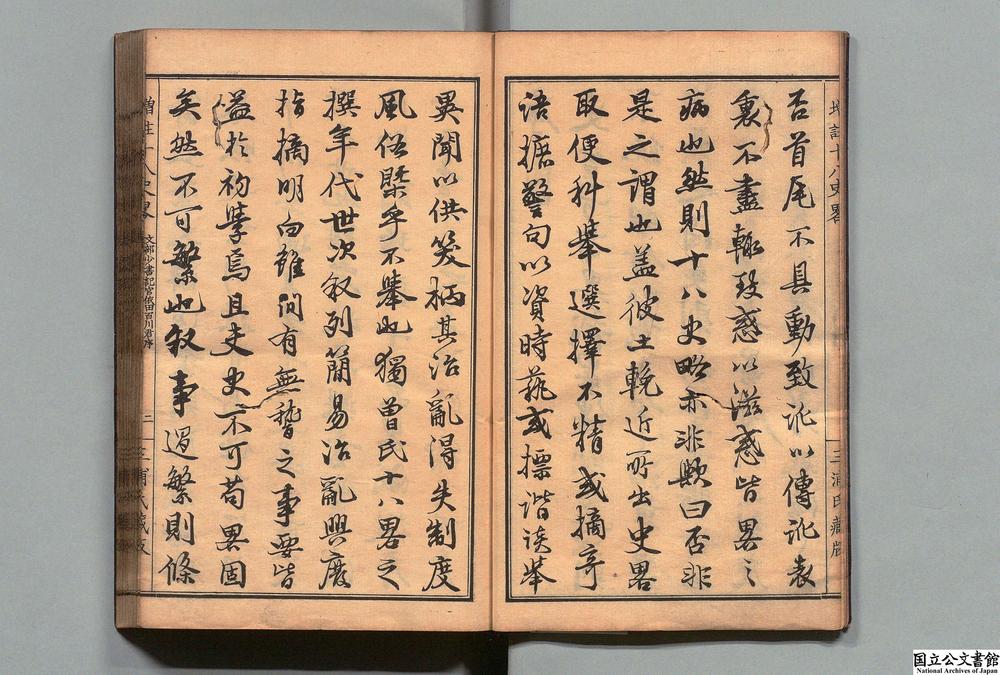 否首尾不具動致訛以傳訛表
裏不盡輙致惑以滋惑皆畧之
病也然則十八史略亦非歟曰否非
是之謂也盖彼土輓近所出史畧
取便科舉選擇不精或摘奇
語摭警句以資時藝或摽諧談举
異聞以供笑柄其治亂得失制度
風俗槩乎不舉也獨曾氏十八畧之
撰年代世次叙列簡易治亂興廢
指摘明白雖间有無稽之事要皆
益於初學焉且夫史不可苟畧固
矣然不可繁也叙事過繁則條
增註十八史畧
三浦氏藏版
增註十八史畧
文部少書記官依田百川君序
二
三浦氏藏版
国立公文書館
National Archives of Japan